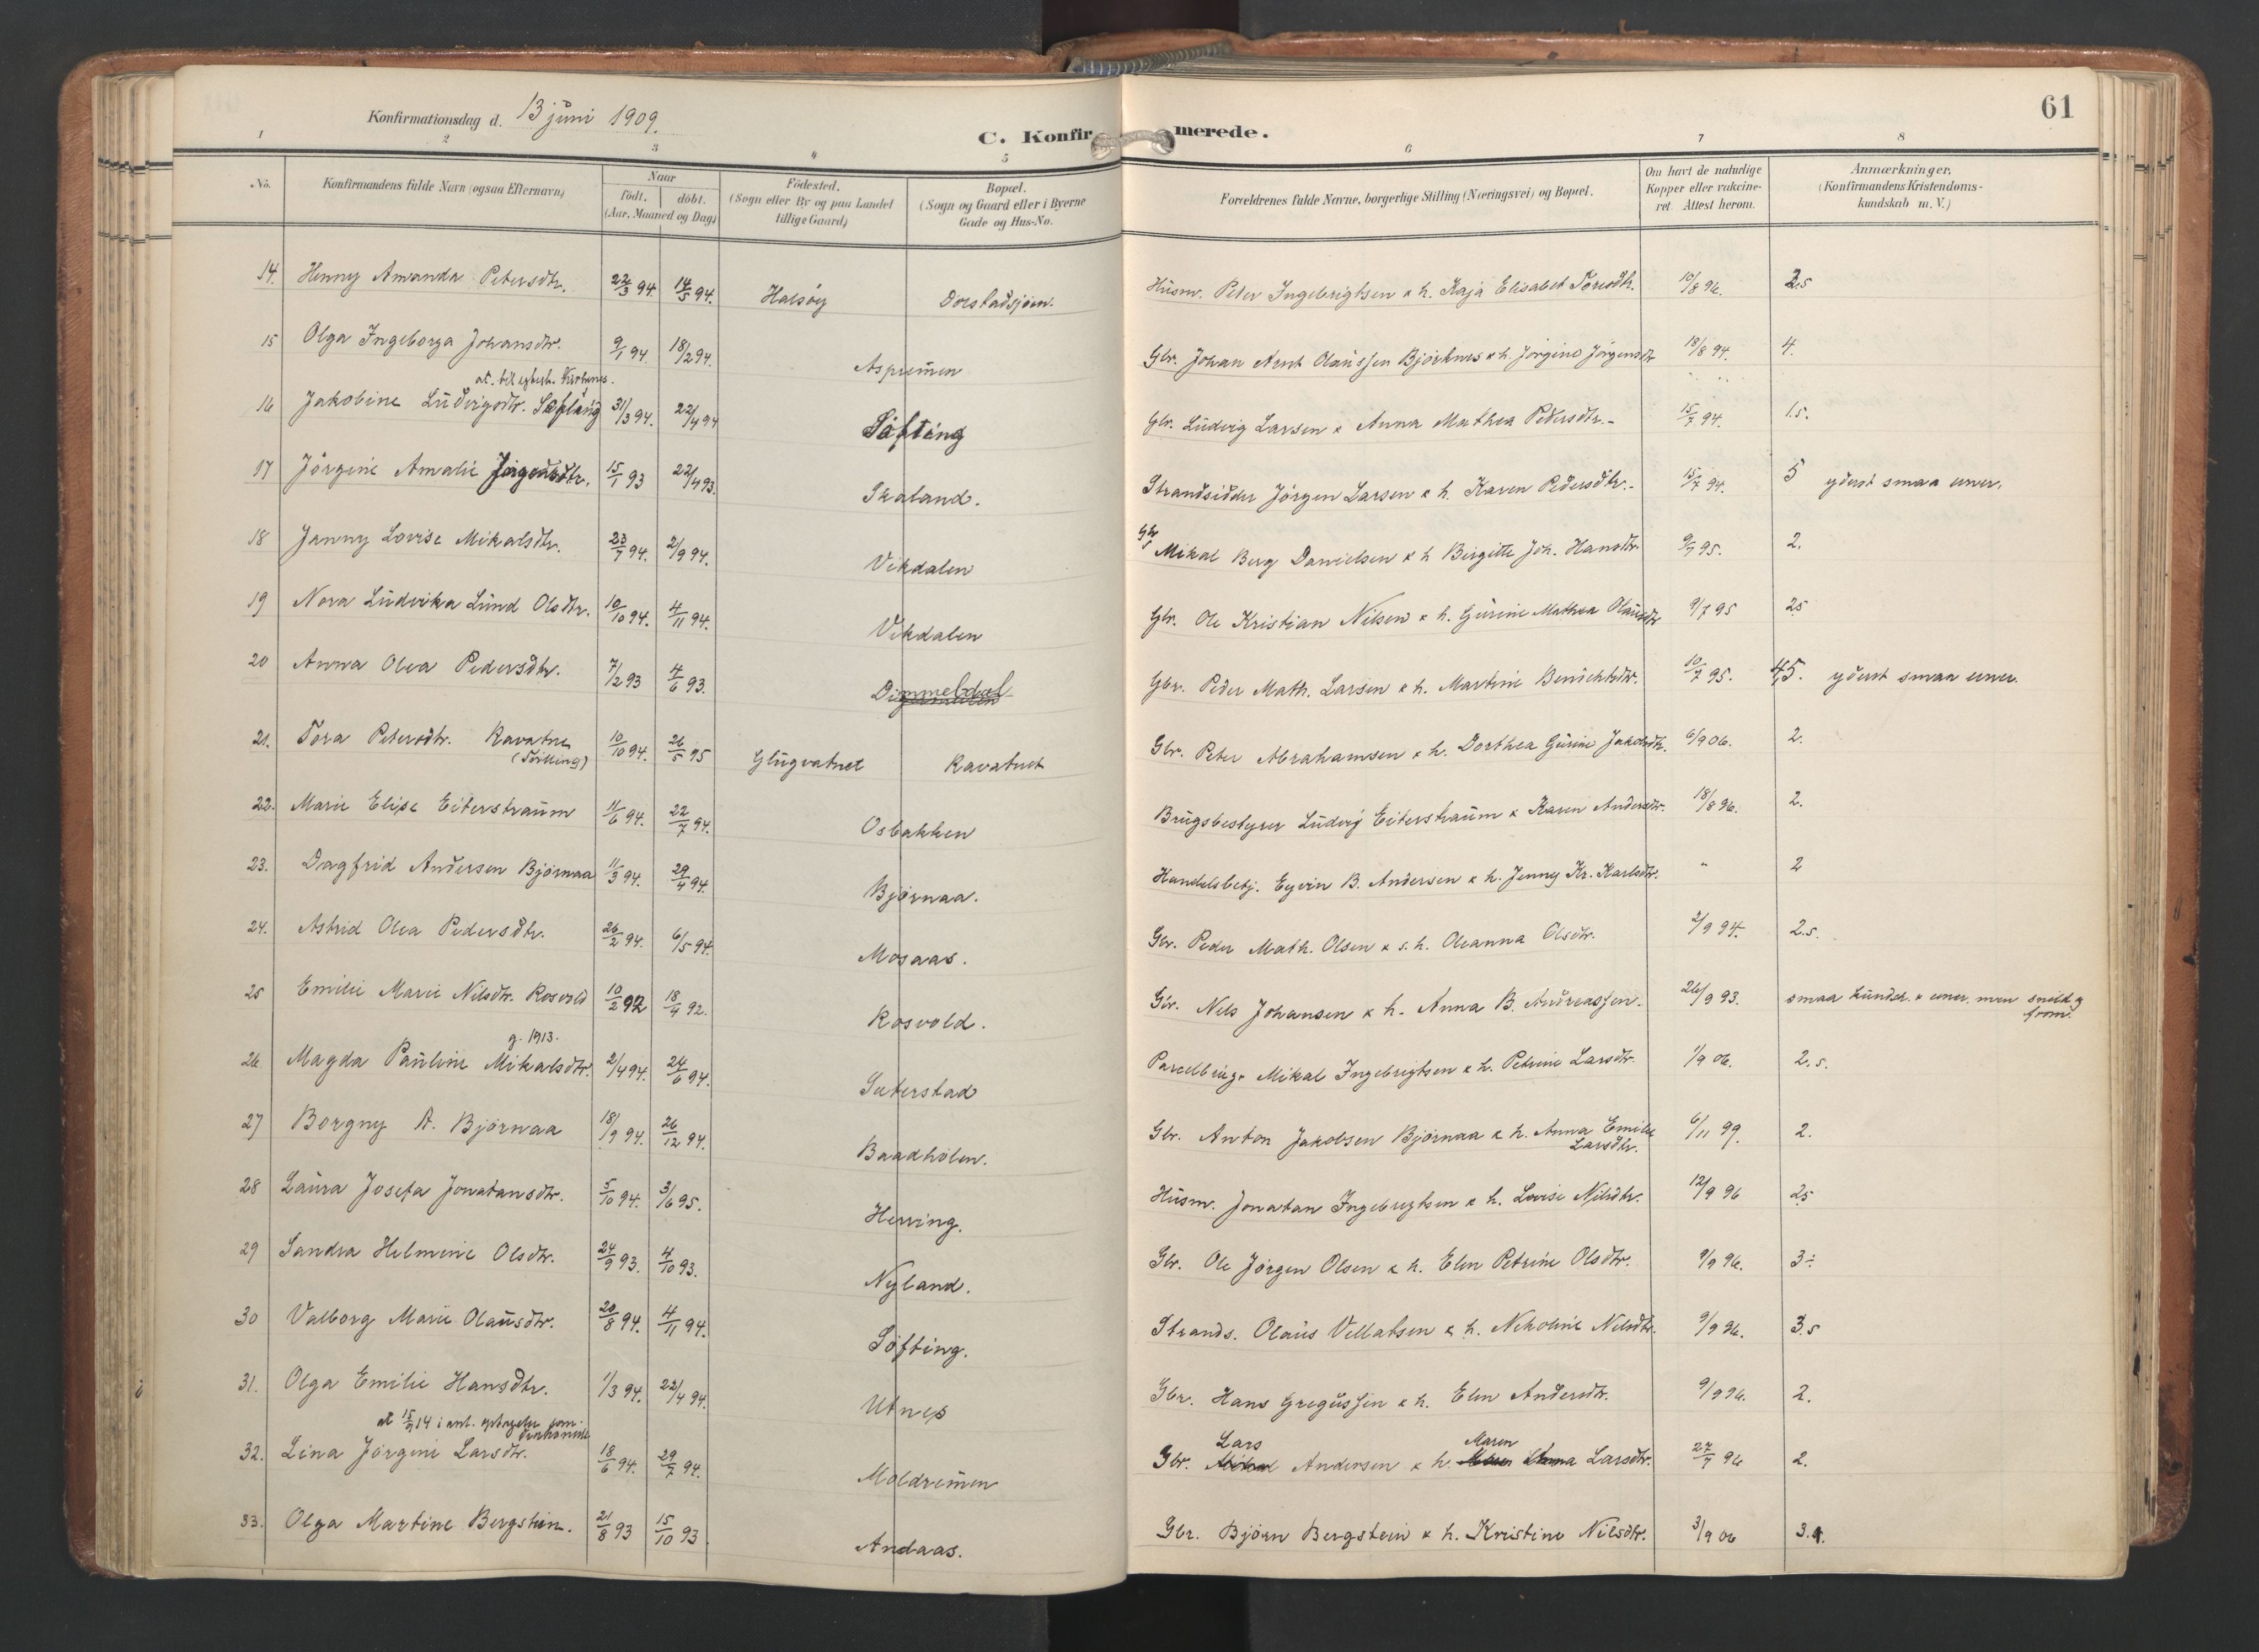 61
Konfirmationsdag d. 13 juni 1909.
C. Konfirmerede.
1 2 3 4 5 6 7 8
No. Konfirmandens fulde Navn (ogsaa Efternavn) Naar födt. döbt. (Aar, Maaned og Dag) Födested. (Sogn eller By og paa Landet tillige Gaard) Bopæl. (Sogn og Gaard eller i Byerne Gade og Hus-No. Forældrenes fulde Navne, borgerlige Stilling (Næringsvei) og Bopæl. Om havt de naturlige Kopper eller vakcineret. Attest herom. Anmærkninger, (Konfirmandens Kristendomskundskab m. V.)
14. Henny Amanda Petersdtr. 22/3 94. 14/5 94. Halsöy Dorstadsjöen. Husm. Peter Ingebrigtsen & h. Kaja Elisabet Toresdtr. 10/8 96. 2.5
15 Olga Ingeborga Johansdtr. 9/1 94. 18/2 94. Aspremen Gbr. Johan Arnt Olaussen Björknes & h. Jörgine Jörgensdtr 18/8 94. 4.
16 Jakobine Ludvigsdtr. Söfting 31/3 94. 22/4 94 Söfting Gbr. Ludvig Larsen & Anna Mathea Pedersdtr. 15/7 94. 1.5.
17 Jörgine Amalie Jörgensdtr. 15/1 93 22/4 93. Skaland. Strandsidder Jörgen Larsen & h. Karen Pedersdtr. 15/7 94. 5 yderst smaa evner.
18 Janny Lovise Mikalsdtr. 23/7 94. 2/9 94. Vikdalen Gbr Mikal Berg Danielsen & h Birgitte Joh. Hansdtr. 9/7 95. 2.
19 Nora Ludvika Lund Olsdtr. 10/10 94. 4/11 94. Vikdalen Gbr. Ole Kristian Nilsen & h. Gurine Mathea Olausdtr 9/7 95 2.5
20 Anna Olea Pedersdtr. 7/2 93 4/6 93. Dimmeldal Gbr. Peder Math. Larsen & h. Martine Benediktsdtr. 10/7 95. 4,5. yderst smaa evner.
21. Tora Petersdtr. Kavatne (Tvilling) 10/10 94. 26/5 95 Glugvatnet Kavatnet Gbr. Peter Abrahamsen & h. Dorthea Gurine Jakobsdtr. 6/9 06. 2.
22. Marie Elise Eiterstraum 11/6 94. 22/7 94. Osbakken Brugsbestyrer Ludvig Eiterstraum & Karen Andersdtr. 18/8 96. 2.
23. Dagfrid Andersen Björnaa 11/3 94. 29/4 94. Björnaa. Handelsbetj. Eyvin B. Andersen & h. Jenny Kr. Karlsdtr. " 2
24. Astrid Olea Pedersdtr. 26/2 94. 6/5 94. Mosaas. Gbr. Peder Math. Olsen & s. h. Oleanna Olsdtr. 2/9 94. 2.5.
25 Emilie Marie Nilsdtr. Rosvold 10/2 92 18/4 92. Rosvold. Gbr. Nils Johansen & h. Anna B. Andreassen. 26/9 93. smaa kundsk. & evner. men snild & from.
g. 1913.
26 Magda Pauline Mikalsdtr. 2/4 94. 24/6 94. Sæterstad Parcelbrug. Mikal Ingebrigtsen & h. Petrine Larsdtr. 1/9 06. 2.5.
27 Borgny A. Björnaa 18/9 94. 26/12 94. Baadhölen. Gbr. Anton Jakobsen Björnaa & h. Anna Emilie Larsdtr. 6/11 99. 2.
28 Laura Josefa Jonatansdtr. 5/10 94. 3/6 95. Herring. Husm. Jonatan Ingebrigtsen & h. Lovise Nilsdtr. 12/9 96 2.5
29 Sandra Helmine Olsdtr. 24/9 93. 4/10 93. Nyland. Gbr. Ole Jörgen Olsen & h. Elen Petrine Olsdtr. 9/9 96. 3÷
30 Valborg Marie Olausdtr. 20/8 94. 4/11 94. Söfting. Strands. Olaus Vellatsen & h. Nikoline Nilsdtr. 9/9 96. 3.5
31. Olga Emilie Hansdtr. 1/3 94. 22/4 94. Utnes Gbr. Hans Gregussen & h. Elen Andersdtr. 9/9 96. 2.
32. Lina Jörgine Larsdtr. 18/6 94. 29/7 94. Moldremen Gbr. Lars Andersen & h. Maren Anna Larsdtr. 27/7 96 2.
33. Olga Martine Bergstein. 21/8 93 15/10 93. Andaas. Gbr. Björn Bergstein & h. Kristine Nilsdtr. 3/9 06 3.